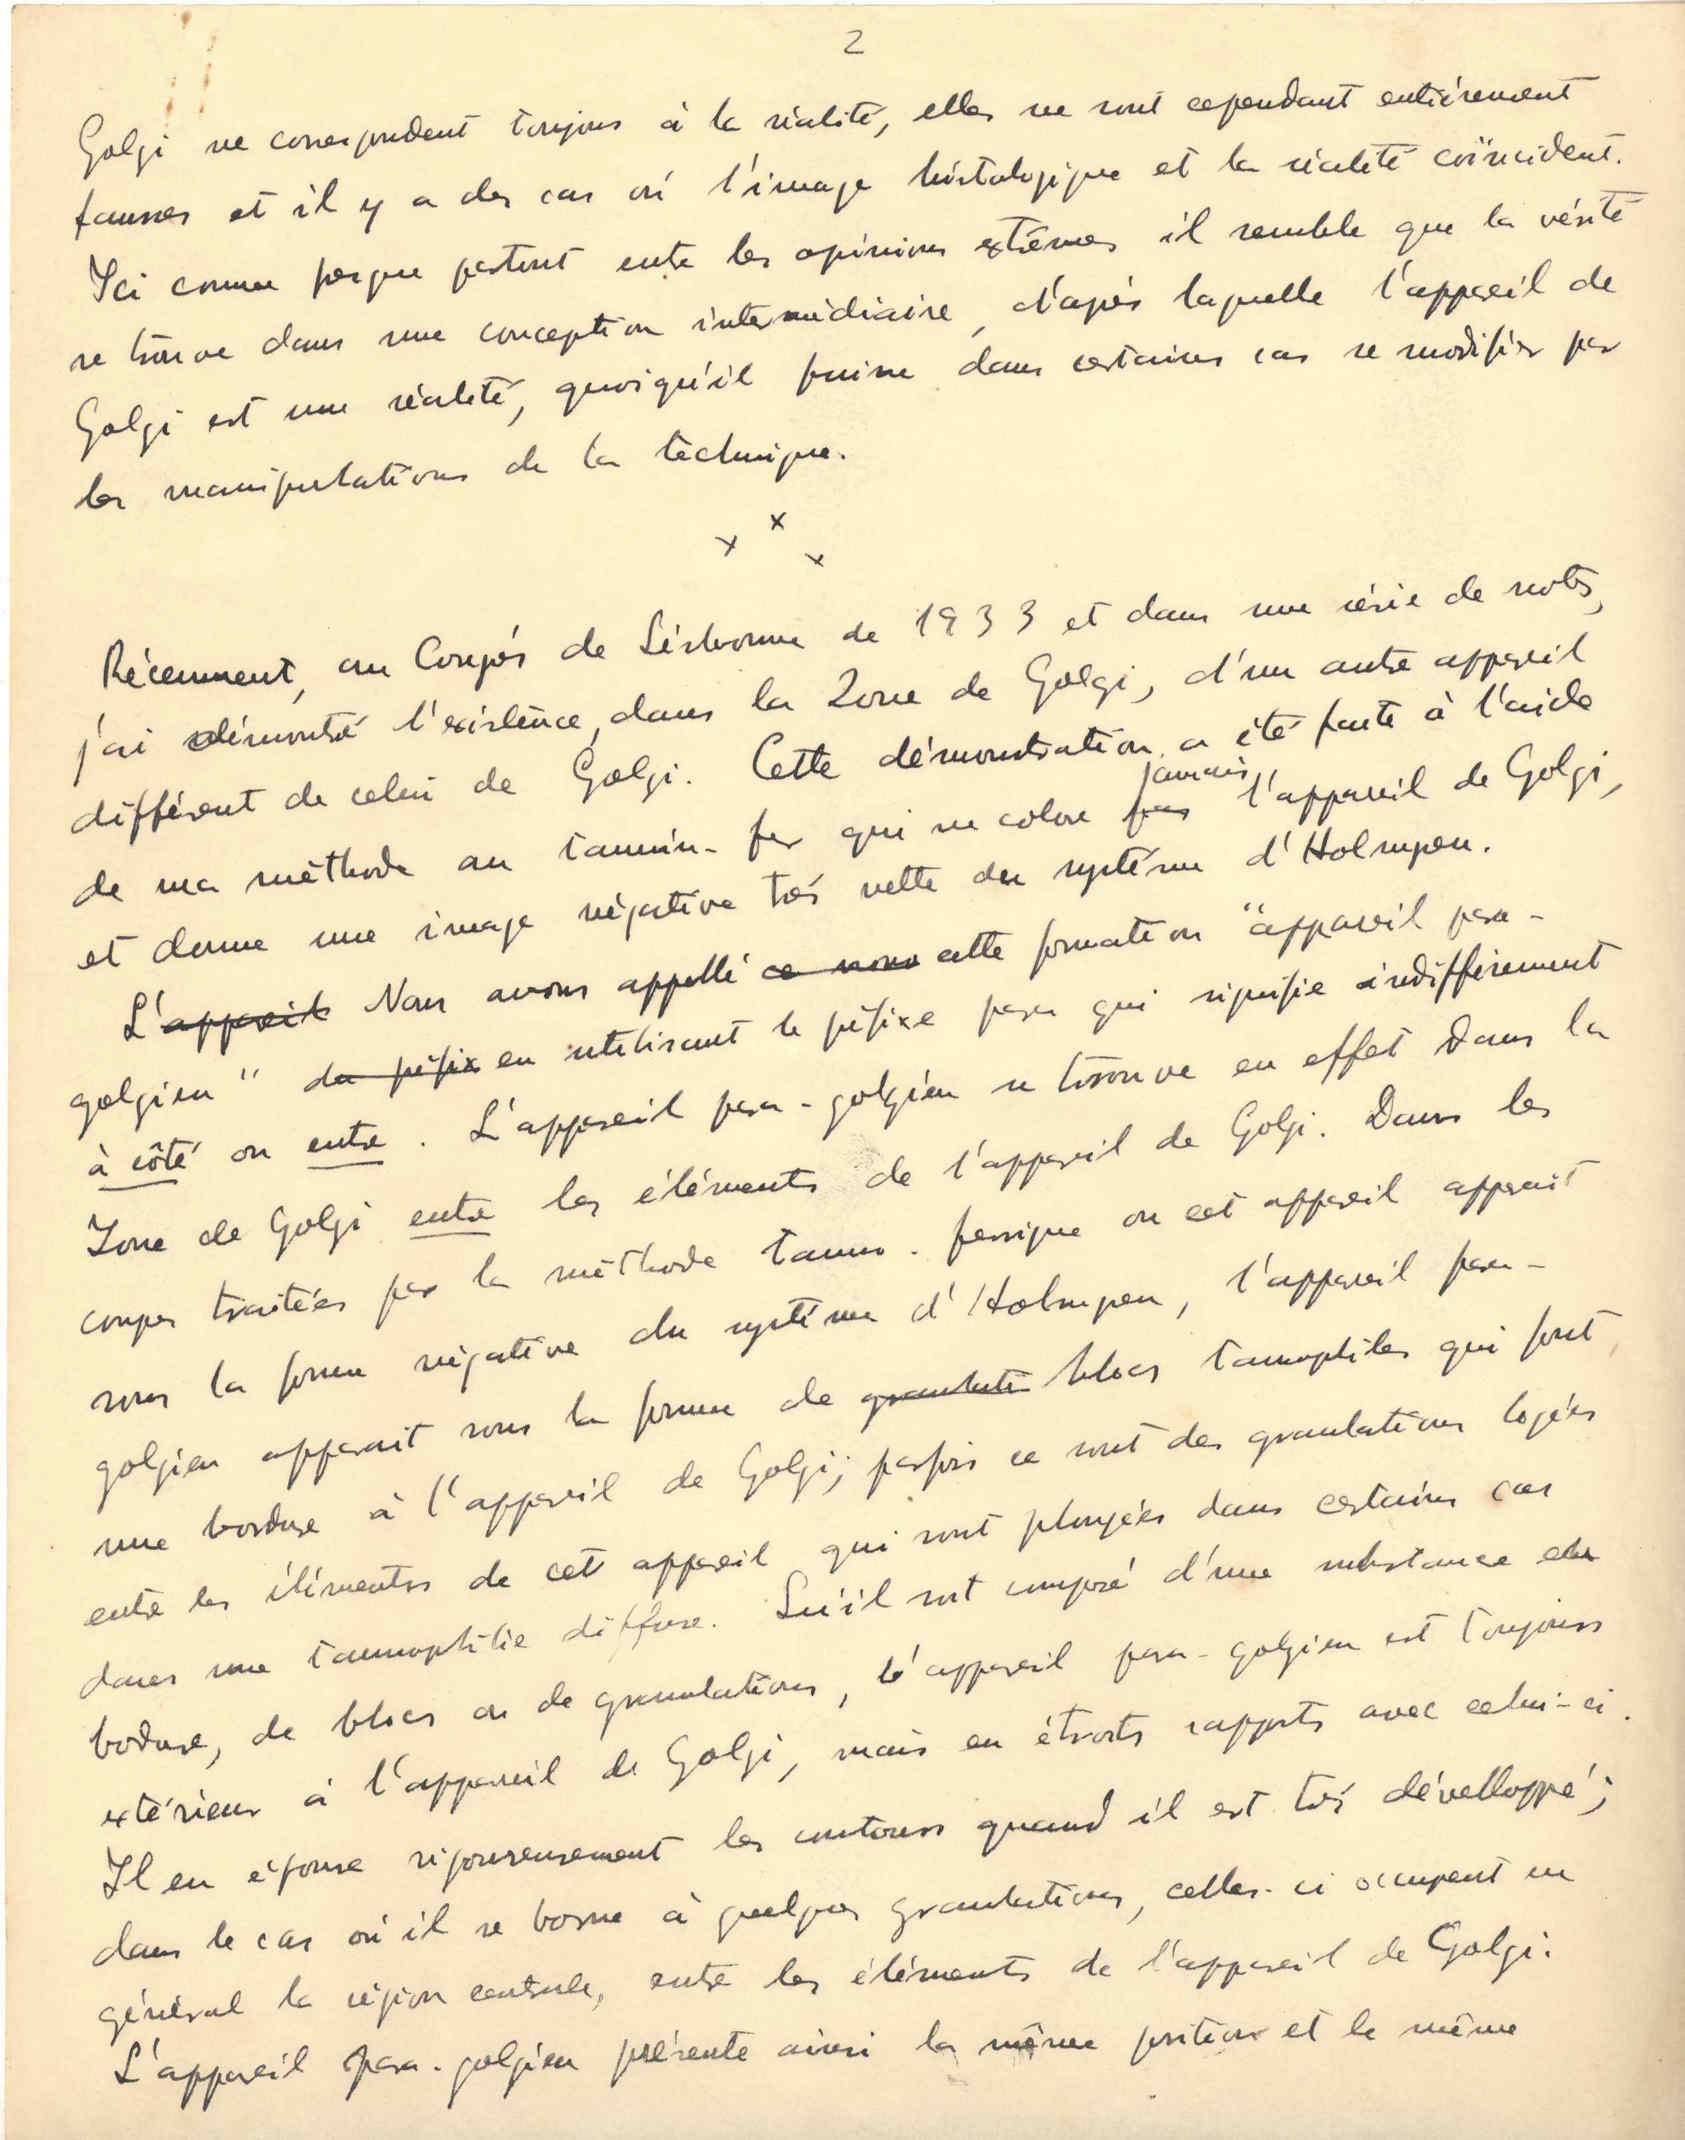 2
Golgi ne correspondent toujours à la réalité, elles ne sont cependant entièrement
fausses et il y a des cas où l'image histologique et la réalité coïncident.
Ici comme presque partout entre les opinions extrêmes il semble que la vérité
se trouve dans une conception intermédiaire, d'après laquelle l'appareil de
Golgi est une réalité, quoiqu'il puisse dans certains cas se modifier par
les manipulations de la technique.
x x x
Récemment, au Congrès de Lisbonne de 1933 et dans une série de notes,
j'ai démontré l'existence, dans la Zone de Golgi, d'un autre appareil
différent de celui de Golgi. Cette démonstration a été faite à l'aide
de ma méthode au tannin-fer qui ne colore pas jamais l'appareil de Golgi,
et donne une image négative très nette du système d'Holmgren.
L'appareil Nous avons appellé ce nom cette formation "appareil para-
golgien" du préfix en utilisant le préfixe para qui signifie indifféremment
à côté ou entre. L'appareil para-golgien se trouve en effet dans la
Zone de Golgi entre les éléments de l'appareil de Golgi. Dans les
coupes traitées par la méthode tanno-ferrique ou cet appareil apparait
sous la forme négative du système d'Holmgren, l'appareil para-
golgien apparait sous la forme de granulatio blocs tannophiles qui font
une bordure à l'appareil de Golgi; parfois ce sont des granulations logées
entre les éléments de cet appareil qui sont plongées dans certains cas
dans une tannophilie diffuse. Qu'il soit composé d'une substance de
bodure, de blocs ou de granulations, l'appareil para-golgien est toujours
extérieur à l'appareil de Golgi, mais en étroits rapports avec celui-ci.
Il en épouse rigoureusement les contours quand il est très dévelloppé;
dans le cas où il se borne à quelques granulations, celles-ci occupent en
général la région centrale, entre les éléments de l'appareil de Golgi.
L'appareil para-golgien présente ainsi la même position et le même